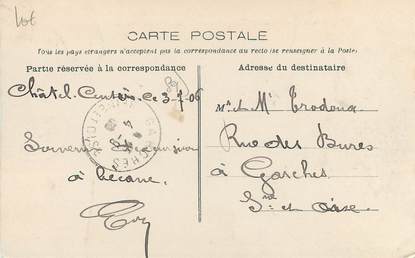 lot
CARTE POSTALE
Tous les pays étrangers n'acceptent pas la correspondance au recto (se renseigner à la Poste).
Partie réservée à la correspondance
Adresse du destinataire
Châtel-Censoir ce 3-7-06
Souvenir excursion
à bécane.
M. et Me
Rue des Bures
à Garches
Sne et Oise
GARCHES